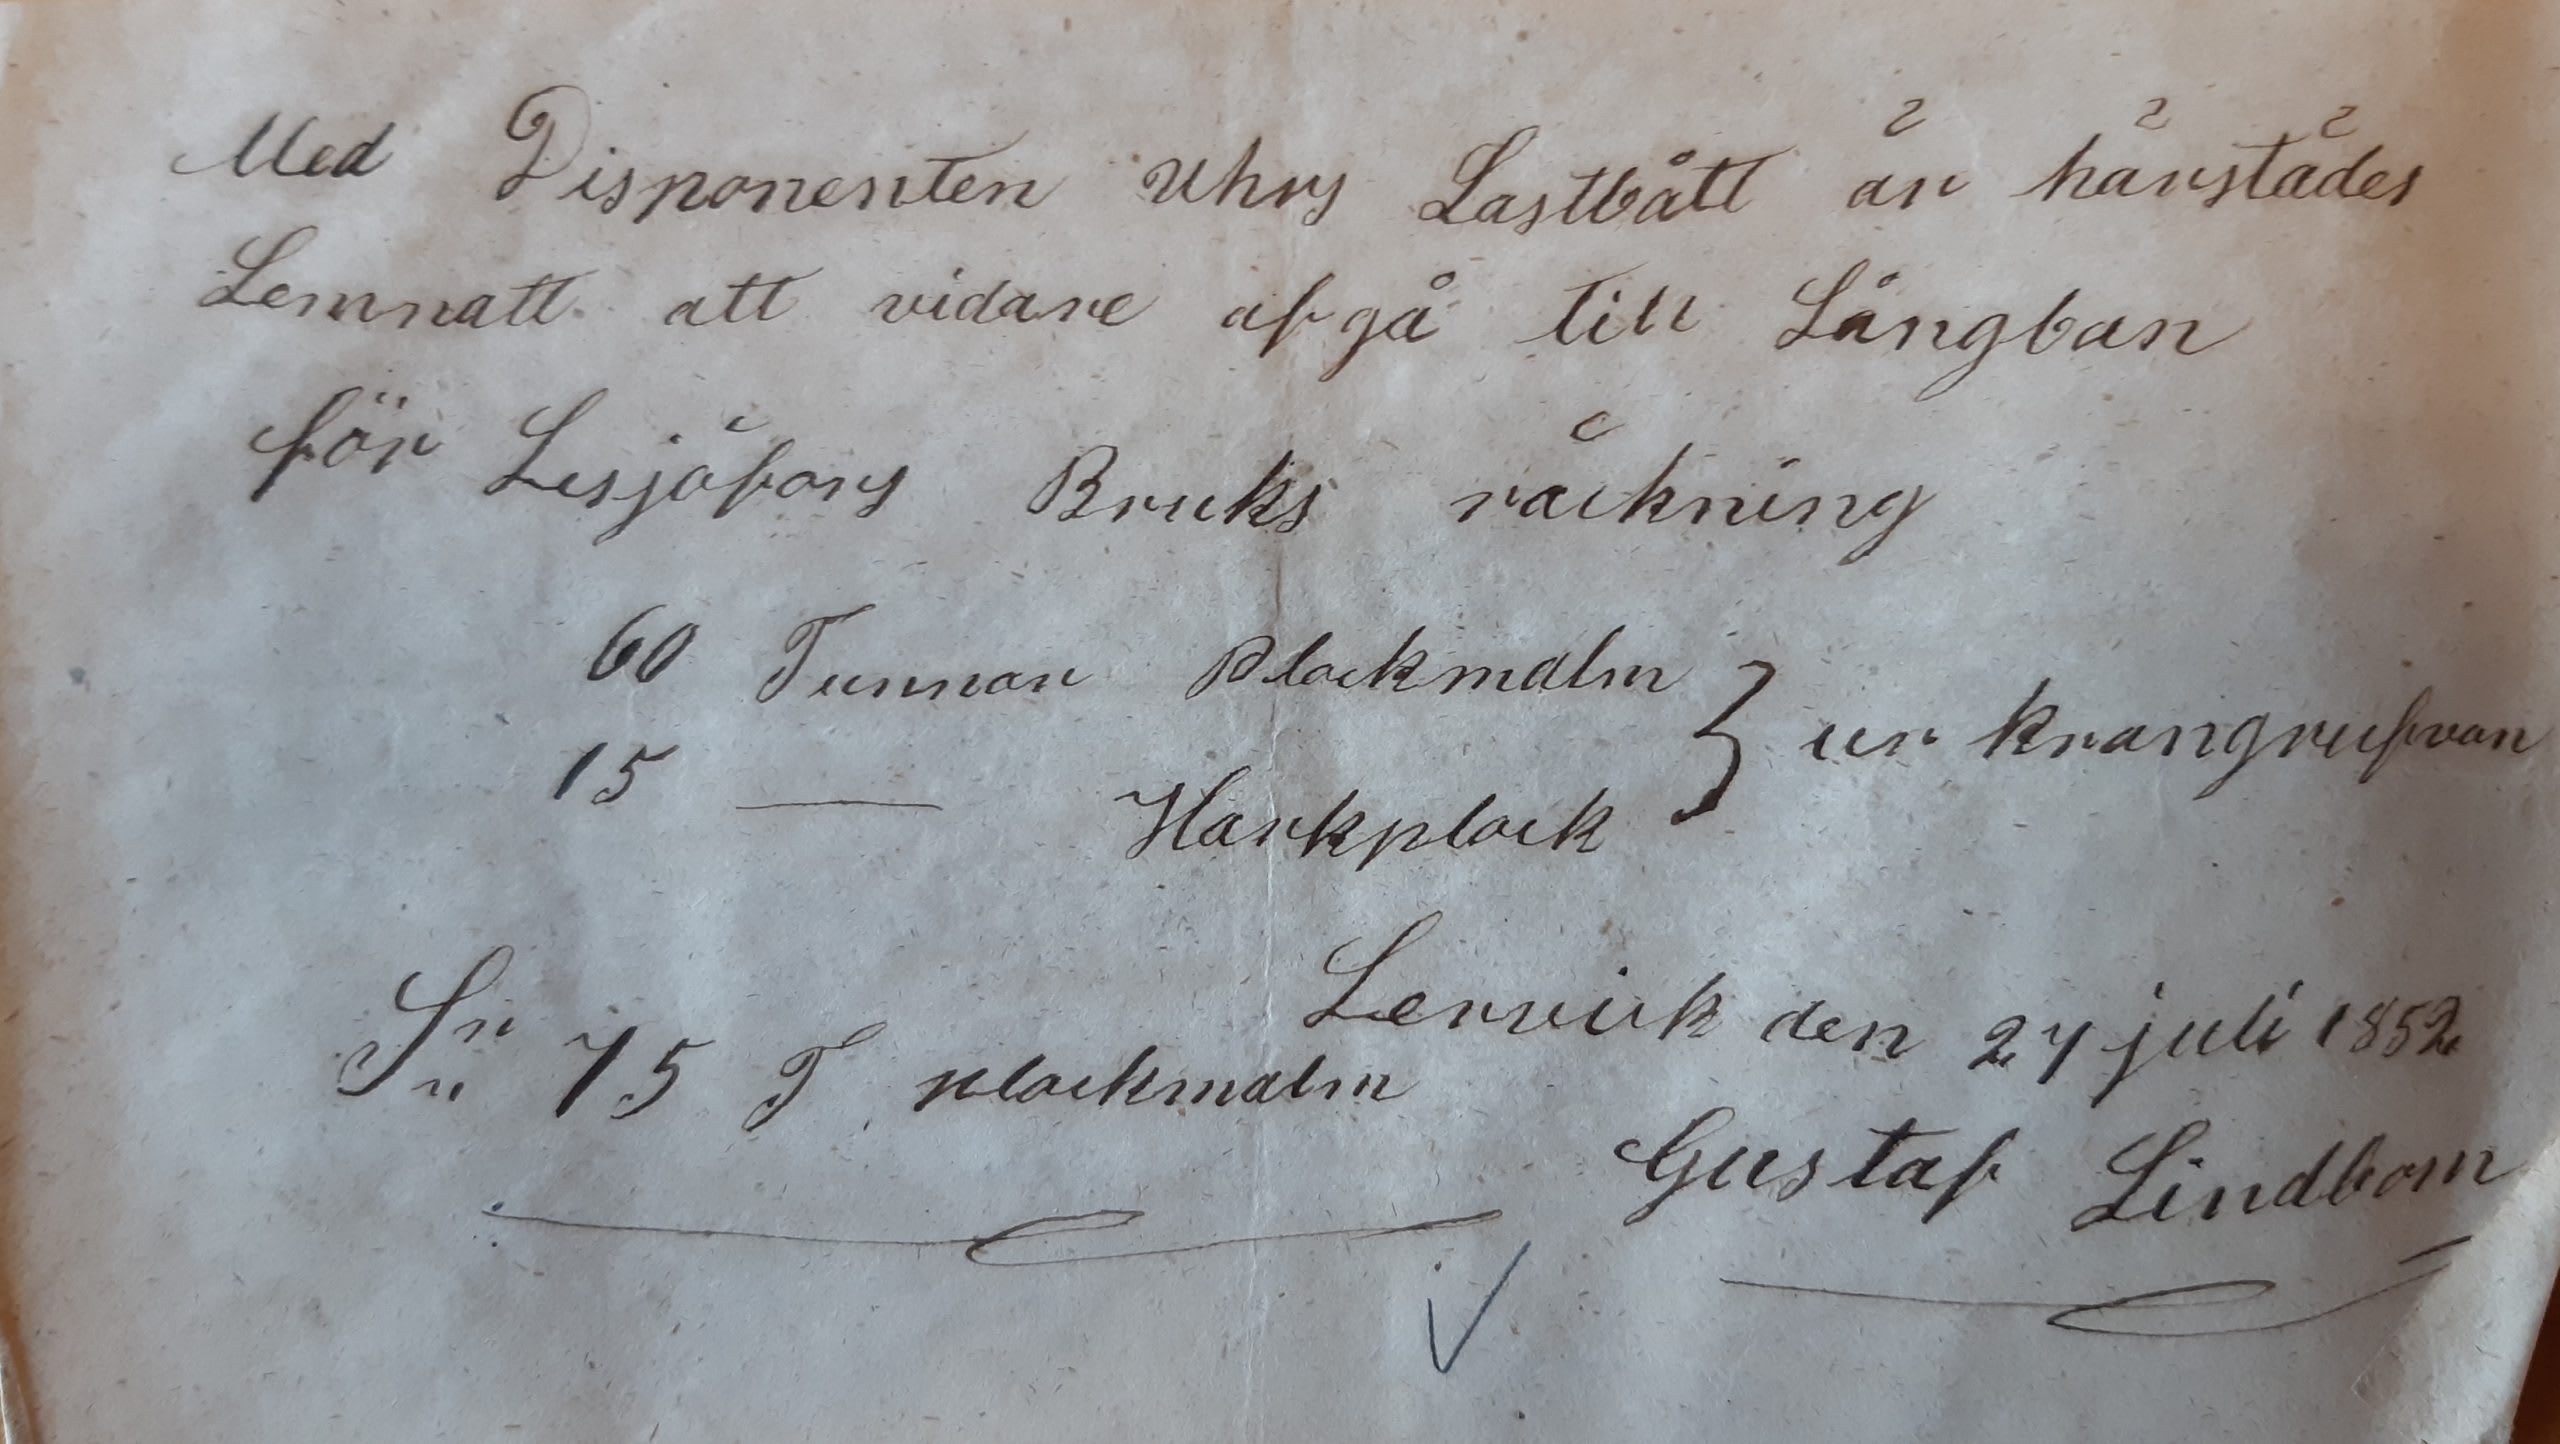 Med Disponenten Uhrs Lastbått är härstädes
Lemnatt att vidare afgå till Långban
för Lesjöfors Bruks räckning
60 Tunnor Plockmalm
15 — Harkplock } ur krangrufvan
Lervick den 27 juli 1852
Sr 75 T plockmalm
Gustaf Lindbom